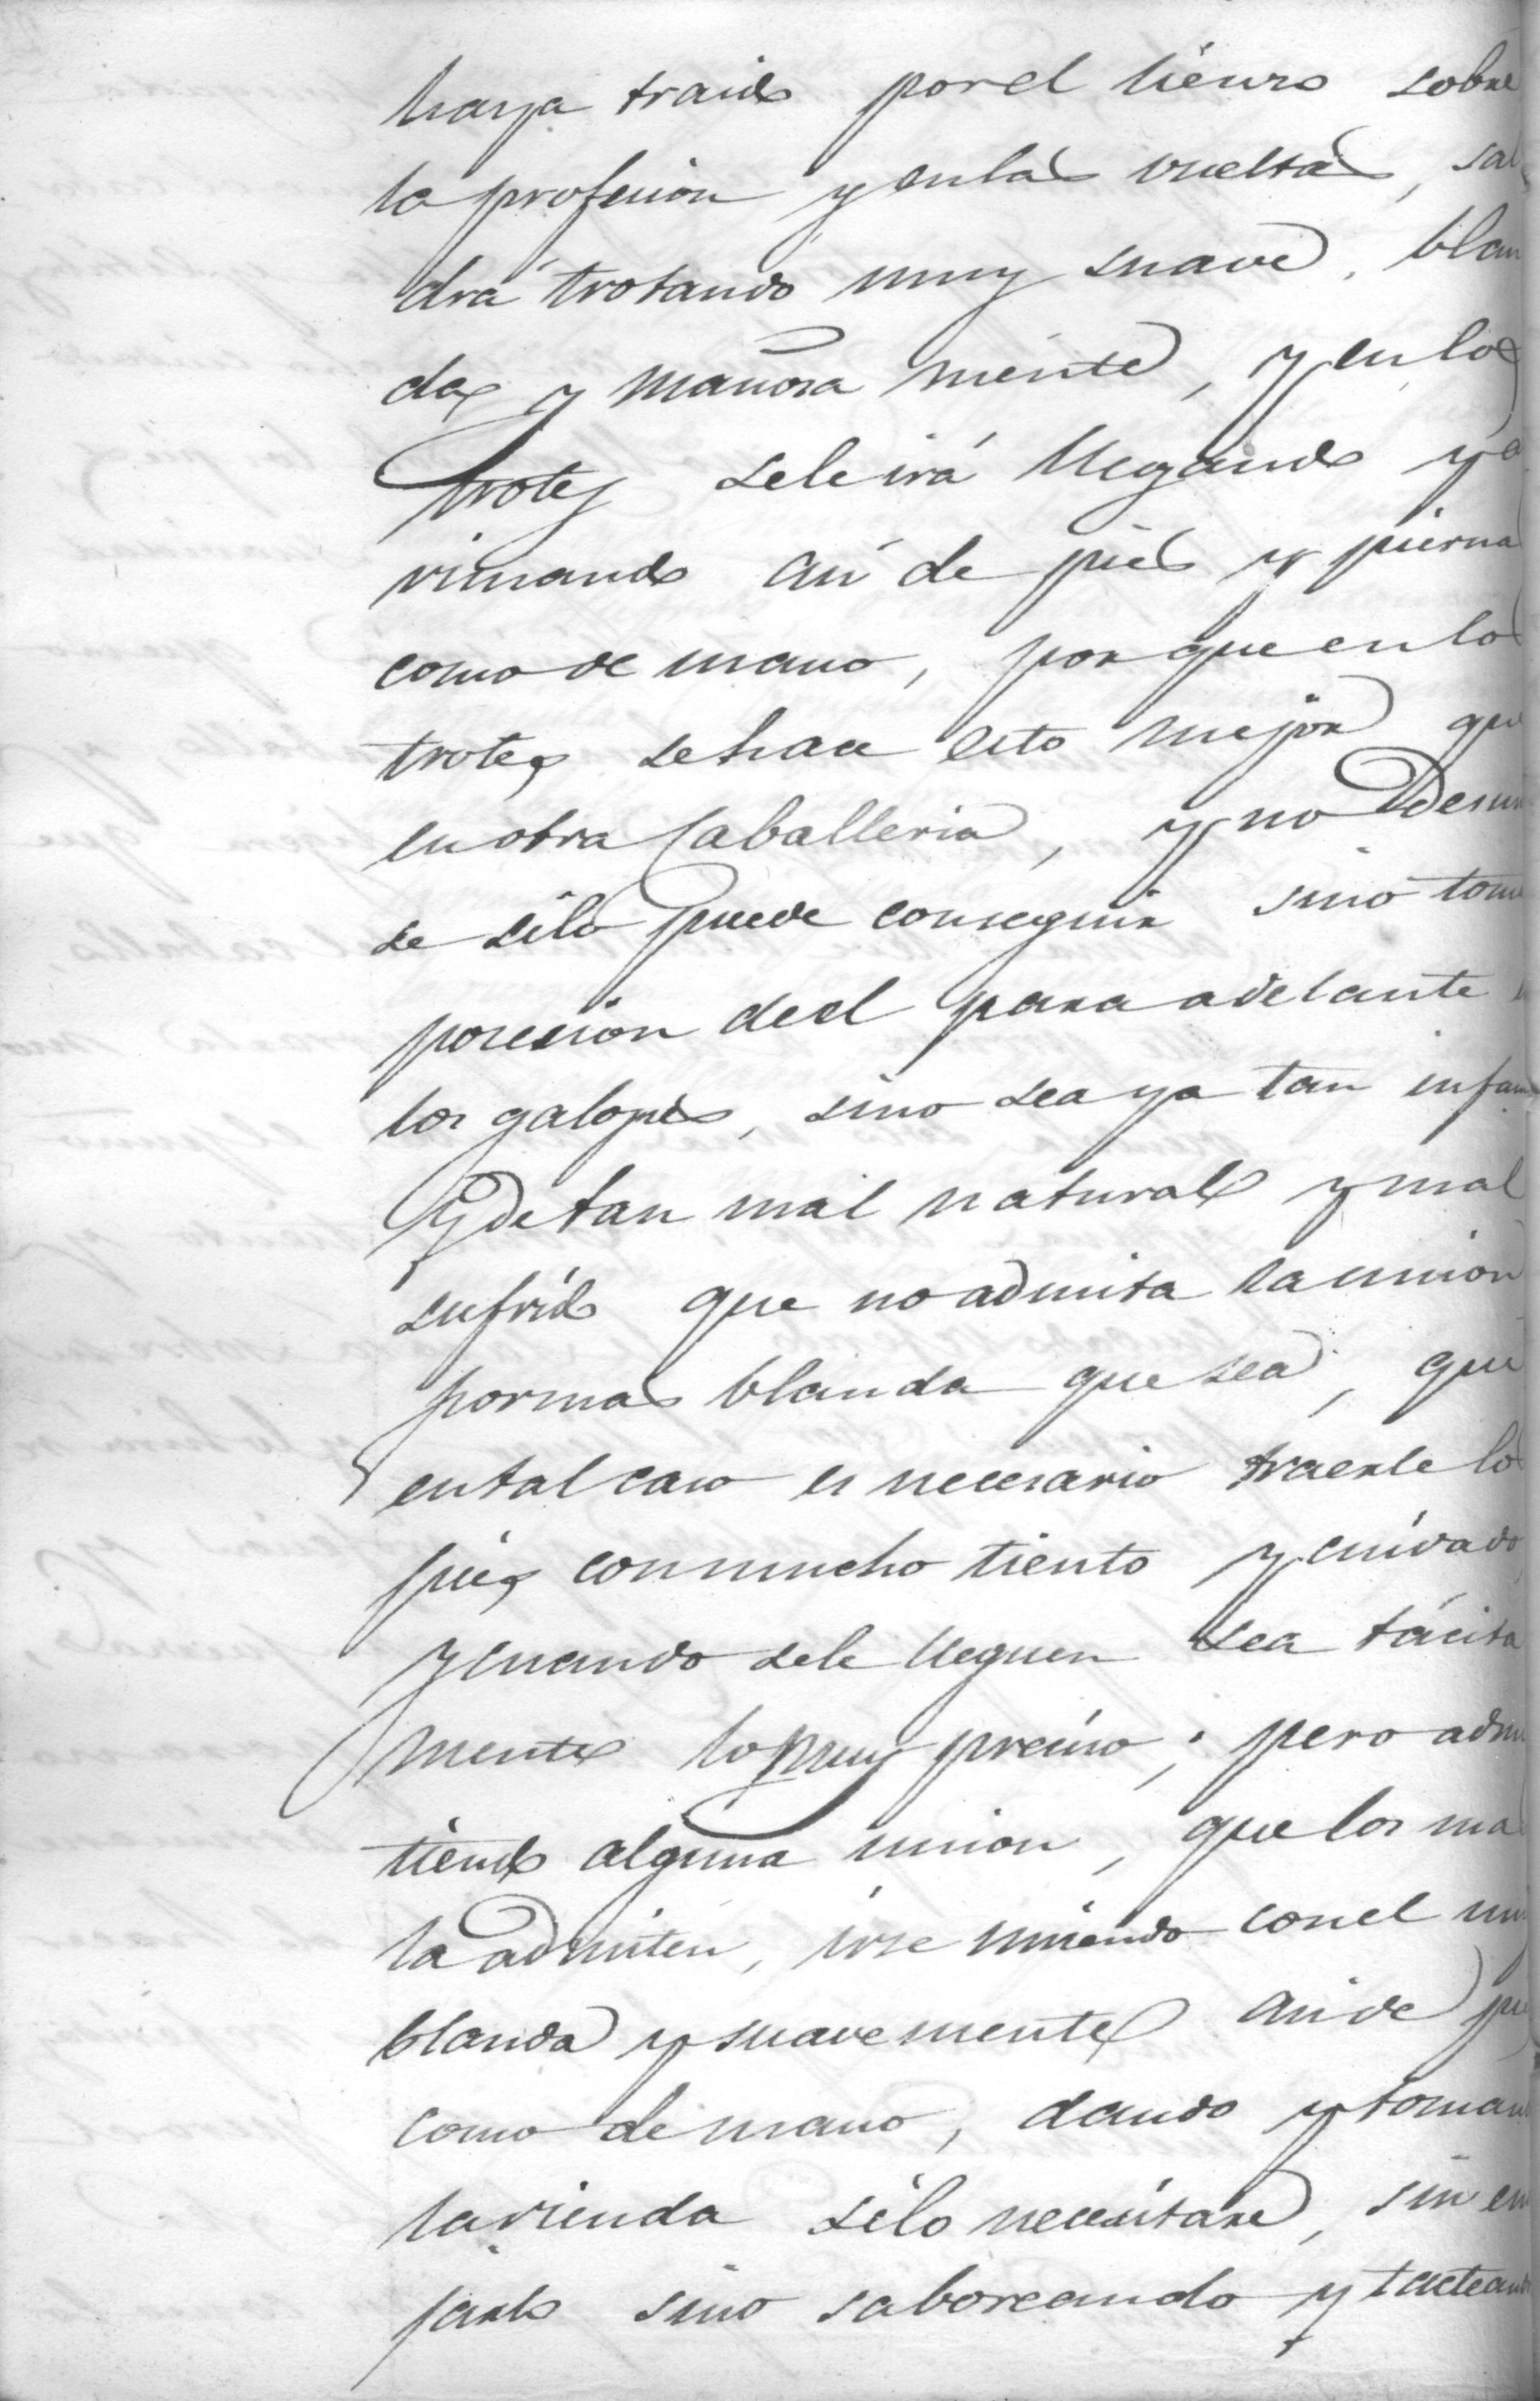 haya traido por el lienzo sobre
la profesion y en las vueltas, sal
drá trotando muy suave, blan
da y mañosa mente, y en los
trotes se le irá llegando y a
rimando así de pies y pierna
como de mano, por que en los
trotes se hace esto mejor que
en otra Caballeria, y no
se si lo puede conseguir sino tome
posesion de el para adelante
los galopes, sino sea ya tan
y de tan mal natural y mal
sufrido que no admita la union
por mas blanda que sea, que
en tal caso es necesario traerle los
pies con mucho tiento y cuidado,
y cuando se le lleguen sea tácita
mente lo muy preciso; pero admi
tiendo alguna union, que los mas
la admiten, irse uniendo con el muy
blanda y suavemente asi de pie
como de mano, dando y toman
la rienda si lo necesitare, sin en
jarlo sino saboreando y tacteando